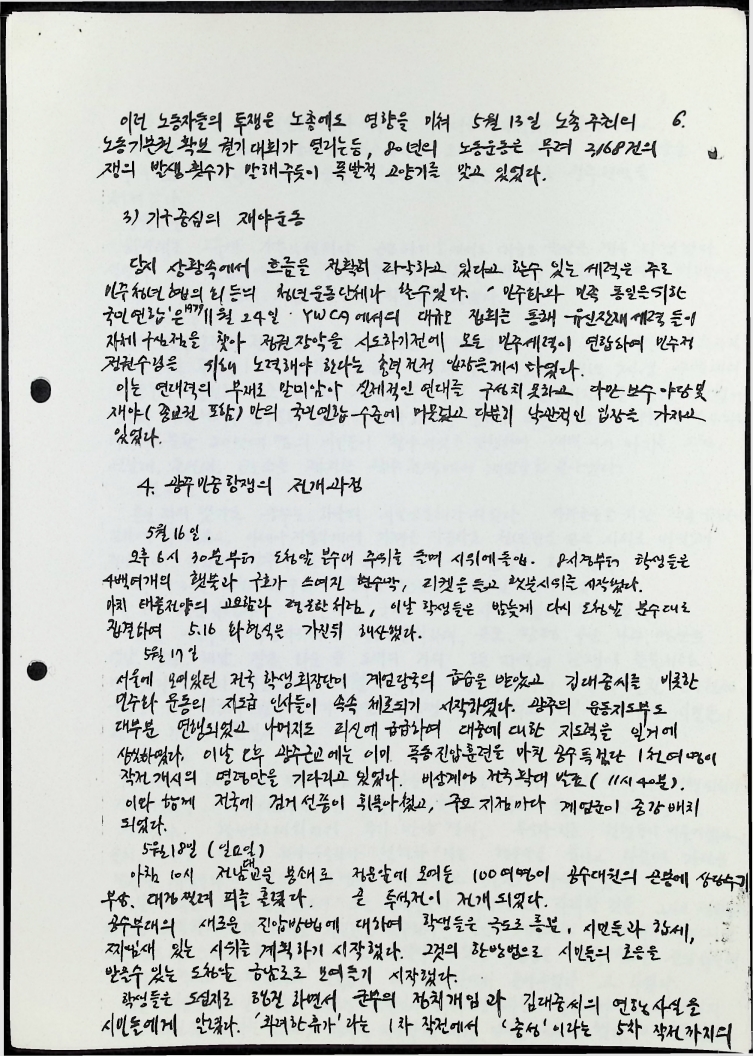 이런 노동자들의 투쟁은 노총에도 영향을 미쳐 5월 13일 노총 주최의 6.
노동기본권 확보 궐기대회가 열리는등, 80년의 노동운동은 무려 2,168건의
쟁의 발생 횟수가 말해주듯이 폭발적 고양기를 맞고 있었다.
3) 기구중심의 재야운동
당시 상황속에서 흐름을 정확히 파악하고 있다고 할수 있는 세력은 주로
민주청년협의회등의 청년운동단체라 할수있다. '민주화와 민족 통일을 위한
국민연합'은 1979 11월 24일 YWCA에서의 대규모 집회를 통해 유신잔재세력들이
자체 구심점을 찾아 정권장악을 시도하기전에 모든 민주세력이 연합하여 민주정
정권수립을 위해 노력해야 한다는 입장을 제시 하였다.
이는 연대력의 부재로 말미암아 실제적인 연대를 구성치 못하고 다만 보수 야당 및
재야(종교권 포함)만의 국민연합 수준에 머물렀고 다분히 낙관적인 입장을 가지고
있었다.
4. 광주민중항쟁의 전개과정
5월 16일.
오후 6시 30분부터 도청앞 분수대 주위를 돌며 시위에 돌입. 8시경부터 학생들은
4백여개의 횃불과 구호가 쓰여진 현수막, 피켓을 들고 횃불시위를 시작했다.
마치 태풍전야의 고요함과 평온한 처럼, 이날 학생들은 밤늦게 다시 도청앞 분수대로
집결하여 5.16 화형식을 가진뒤 해산했다.
5월 17일
서울에 모여있던 전국 학생회장단이 계엄당국의 급습을 받았고 김대중씨를 비롯한
민주화 운동의 지도급 인사들이 속속 체포되기 시작하였다. 광주의 운동지도부도
대부분 연행되었고 나머지도 피신에 급급하여 대중에 대한 지도력을 일거에
상실하였다. 이날 오후 광주근교에는 이미 폭동진압훈련을 마친 공수특전단 1천여명이
작전개시의 명령만을 기다리고 있었다. 비상계엄 전국확대 발표(11시 40분).
이와 함께 전국에 검거선풍이 휘몰아쳤고, 주요 지점마다 계엄군이 증강 배치
되었다.
5월 18일 (일요일)
아침 10시 전남대를 봉쇄로 정문앞에 모여든 100여명이 공수대원의 곤봉에 상당수가
부상, 대검 찔려 피를 흘렸다. 곧 투석전이 전개되었다.
공수부대의 새로운 진압방법에 대하여 학생들은 극도로 흥분, 시민들과 합세,
짜임새 있는 시위를 계획하기 시작했다. 그것의 한방법으로 시민들의 호응을
받을수 있는 도청앞 금남로로 모여들기 시작했다.
학생들은 도심지로 행진 하면서 군부의 정치개입과 김대중씨의 연행사실을
시민들에게 알렸다. '화려한 휴가'라는 1차 작전에서 '충성'이라는 5차 작전까지의